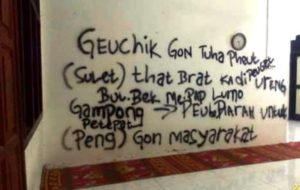 GEUCHIK GON TUHA PHEUT
(SULET) that BRAT KADI PEUGOT URENG
BUI. BEK ME PAP LUMO
GAMPONG → PEUBLARAN UNTUK
PEUTEPAT
(PENG) GON MASYARAKAT